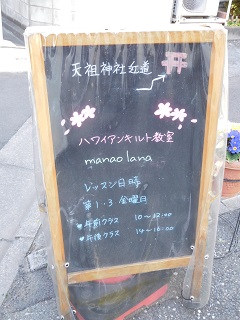 天祖神社近道
ハワイアンキルト教室
manao lana
レッスン日時
第1・3 金曜日
午前クラス 10〜12:00
午後クラス 14〜16:00